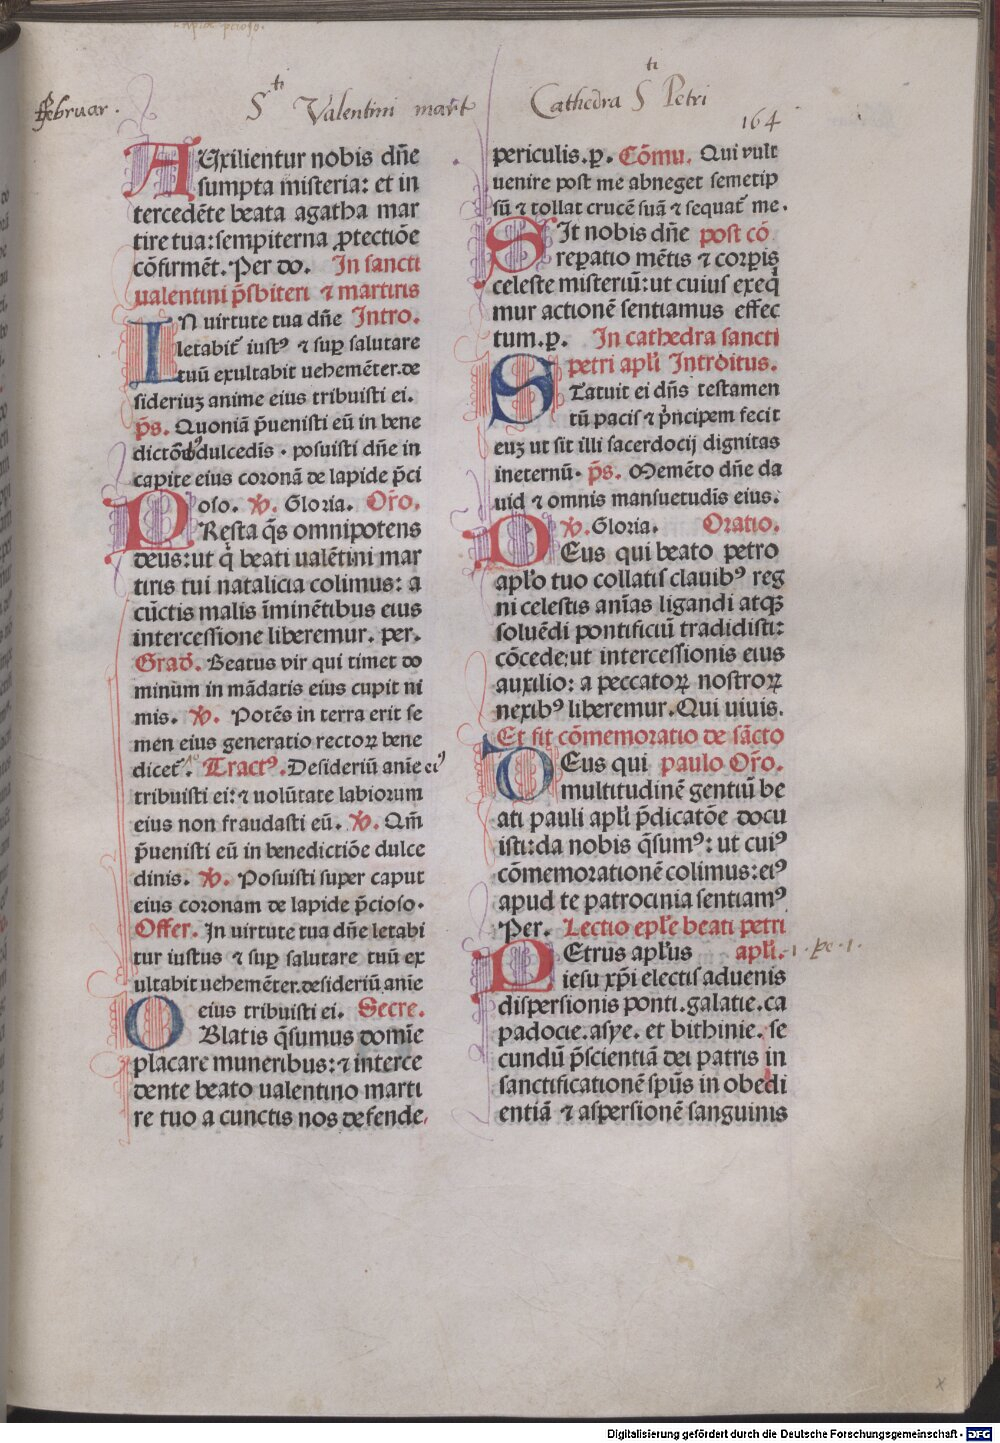 ffebruar.
S ti Valentini mart
Cathedra S ti Petri
164
AUxilientur nobis dñe
sumpta misteria: et in
tercedēte beata agatha mar
tire tua: sempiterna ꝓtectiōe
cōfirmēt. Per do. In sancti
ualentini p̄sbiteri ⁊ martiris
IN uirtute tua dñe Intro.
letabit̄ iustꝰ ⁊ sup̲ salutare
tuū exultabit uehemēter. de
sideriuꝫ anime eius tribuisti ei.
p̄s. Quoniā p̄uenisti eū in bene
dictōibꝰ dulcedīs · posuisti dñe in
capite eius coronā de lapide p̄ci
oso. ℣. Gloria. Or̄o.
PResta q̄s omnipotens
deus: ut q̇ beati ualētini mar
tiris tui natalicia colimus: a
cūctis malis īminētibus eius
intercessione liberemur. per.
Grad̄. Beatus vir qui timet do
minum in mādatis eius cupit ni
mis. ℣. Potēs in terra erit se
men eius generatio rectoꝝ bene
dicet̄. Tractꝰ. Desideriū anīe eiꝰ
tribuisti ei: ⁊ uolūtate labiorum
eius non fraudasti eū. ℣. Qm̄
p̄uenisti eū in benedictiōe dulce
dinis. ℣. Posuisti super caput
eius coronam de lapide p̄cioso.
Offer. In uirtute tua dñe letabi
tur iustus ⁊ sup̲ salutare tuū ex
ultabit uehemēter. desideriū anīe
eius tribuisti ei. Secre.
OBlatis q̄sumus domīe
placare muneribus: ⁊ interce
dente beato ualentino marti
re tuo a cunctis nos defende
periculis. p̲. Cōmu. Qui vult
uenire post me abneget semetip
sū ⁊ tollat crucē suā ⁊ sequat̄ me.
SIt nobis dñe post cō
reꝑatio mētis ⁊ corꝑis
celeste misteriū: ut cuius exeq̇
mur actionē sentiamus effec
tum. p̲. In cathedra sancti
petri apl̄i Introitus.
STatuit ei dñs testamen
tū pacis ⁊ ṗncipem fecit
euꝫ ut sit illi sacerdocij dignitas
ineternū. p̄s. Memēto dñe da
uid ⁊ omnis mansuetudīs eius.
℣. Gloria. Oratio.
DEus qui beato petro
apl̄o tuo collatis clauibꝰ reg
ni celestis anīas ligandi atqꝫ
soluēdi pontificiū tradidisti:
cōcede: ut intercessionis eius
auxilio: a peccatoꝝ nostroꝝ
nexibꝰ liberemur. Qui uiuis.
Et fit cōmemoratio de sācto
DEus qui paulo Or̄o.
multitudinē gentiū be
ati pauli apl̄i p̄dicatōe docu
isti: da nobis q̄sumꝰ: ut cuiꝰ
cōmemorationē colimus: eiꝰ
apud te patrocinia sentiamꝰ
Per. Lectio epl̄e beati petri
PEtrus apl̄us apl̄i. 1. pe. 1.
iesu xp̄i electis aduenis
dispersionis ponti. galatie. ca
padocie. asye. et bithinie. se
cundū p̄scientiā dei patris in
sanctificationē sp̄us in obedi
entiā ⁊ aspersionē sanguinis
Digitalisierung gefördert durch die Deutsche Forschungsgemeinschaft - DFG